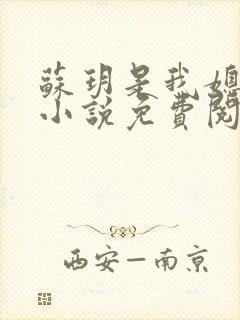 蘇玥是我媳
小說免費閱
西安–南京